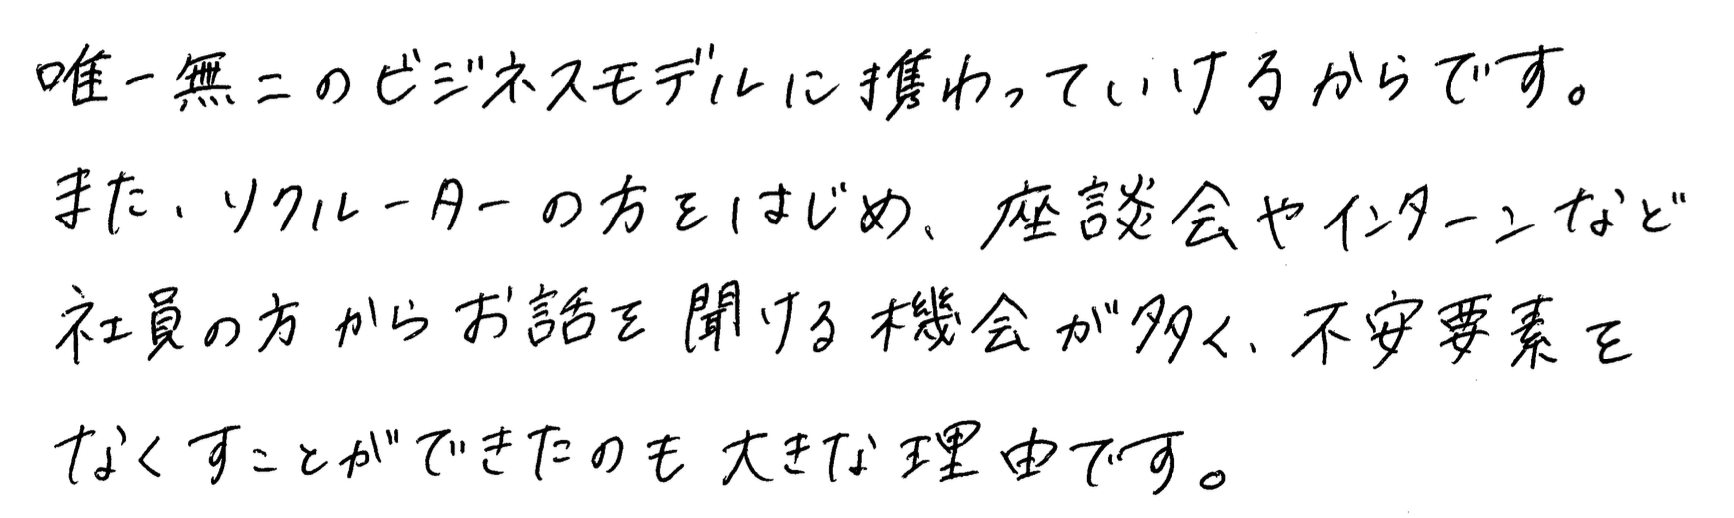 唯一無二のビジネスモデルに携わっていけるからです。
また、リクルーターの方をはじめ、座談会やインターンなど
社員の方からお話を聞ける機会が多く、不安要素を
なくすことができたのも大きな理由です。